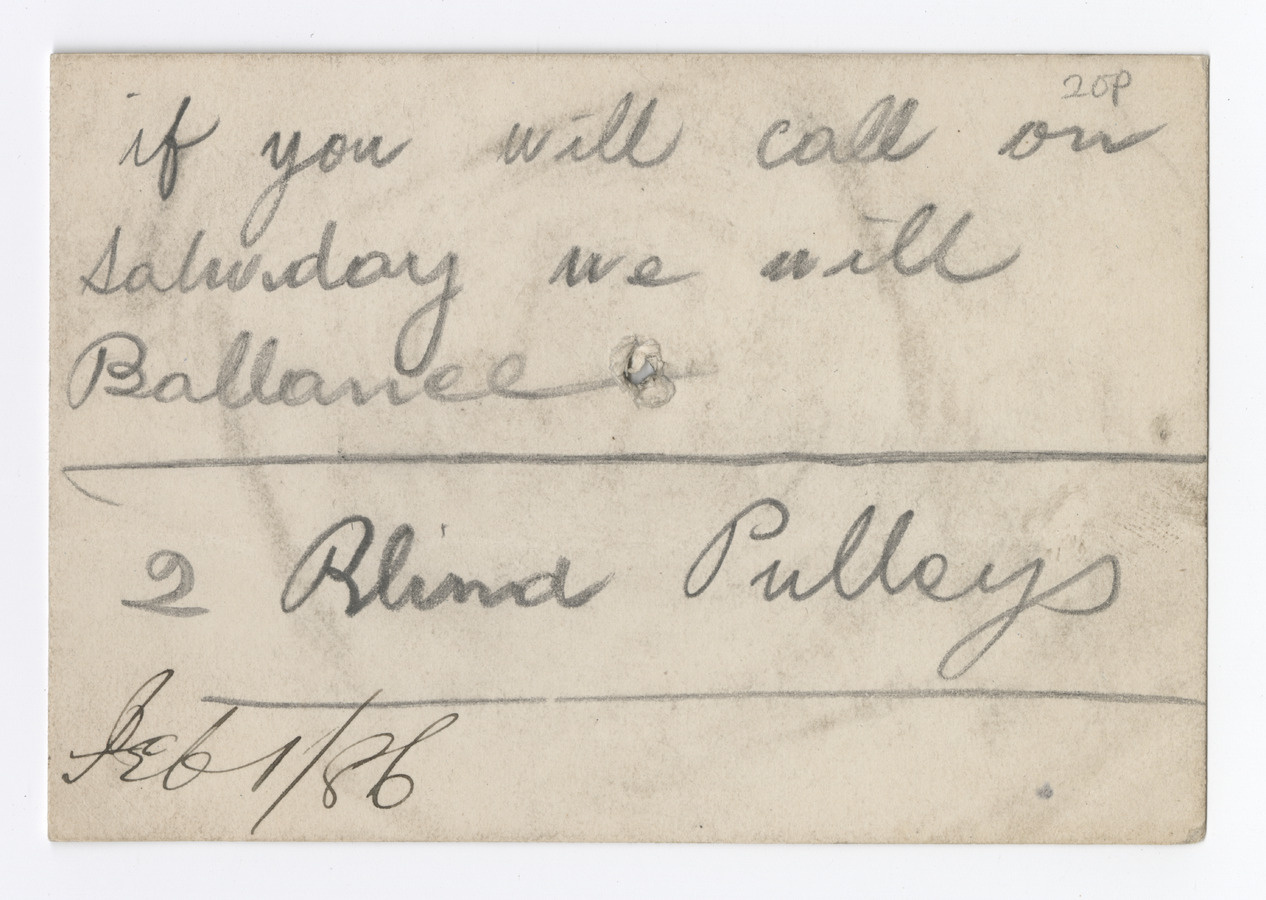 20p
if you will call on
saturday we will
Ballance
2 Blind Pulleys
Feb 1/86